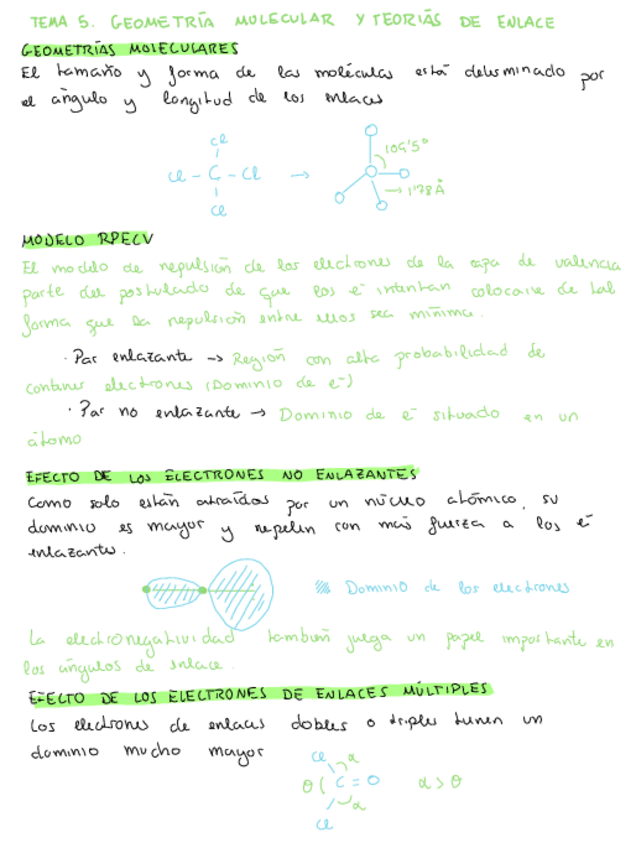 TEMA 5. GEOMETRÍA MOLECULAR Y TEORÍAS DE ENLACE
GEOMETRÍAS MOLECULARES
El tamaño y forma de las moléculas está determinado por
el ángulo y longitud de los enlaces
Cl
Cl - C - Cl →
Cl
109'5°
→ 1'78 Å
MODELO RPECV
El modelo de repulsión de los electrones de la capa de valencia
parte del postulado de que los e⁻ intentan colocarse de tal
forma que la repulsión entre ellos sea mínima.
· Par enlazante → Región con alta probabilidad de
contener electrones (Dominio de e⁻)
· Par no enlazante → Dominio de e⁻ situado en un
átomo
EFECTO DE LOS ELECTRONES NO ENLAZANTES
Como solo están atraídos por un núcleo atómico, su
dominio es mayor y repelen con más fuerza a los e⁻
enlazantes.
Dominio de los electrones
La electronegatividad también juega un papel importante en
los ángulos de enlace.
EFECTO DE LOS ELECTRONES DE ENLACES MÚLTIPLES
Los electrones de enlaces dobles o triples tienen un
dominio mucho mayor
Cl α
θ ( C = O α > θ
α
Cl